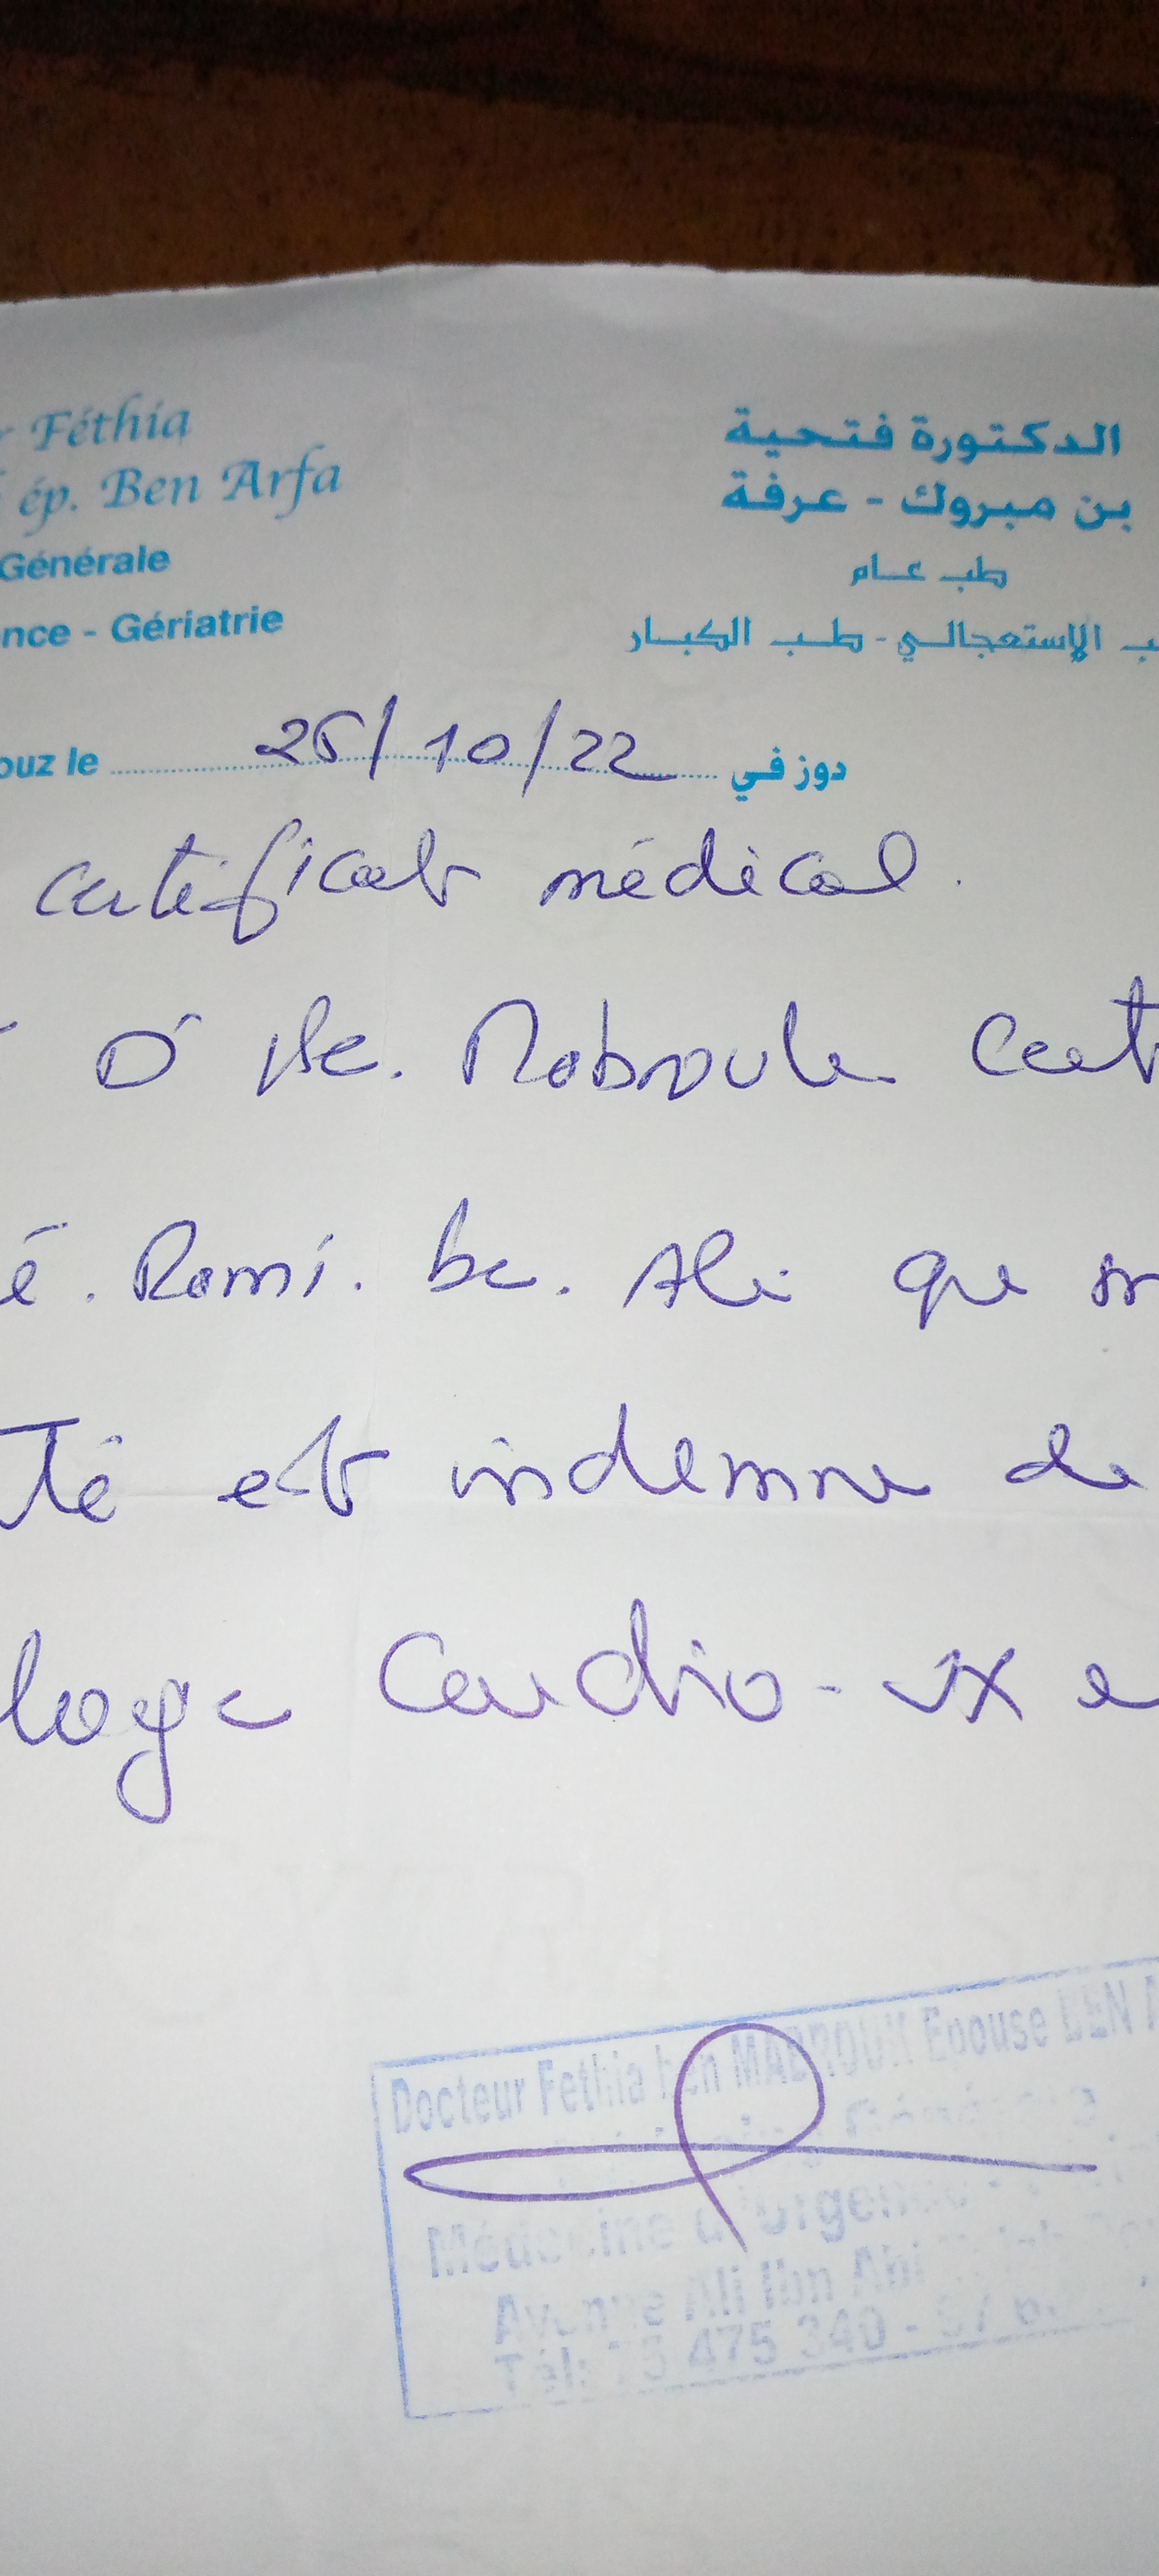 Féthia
ép. Ben Arfa
Générale
nce - Gériatrie
الدكتورة فتحية
بن مبروك - عرفة
طب عام
ب الإستعجالي - طب الكبار
ouz le 26/10/22 دوز في
certificat médical.
Dr Be. Mabrouk cert
é. Rami. be. Ali que
té est indemne de
logie Cardio-vx e
Docteur Fethia ben MABROUK Epouse BEN
Médecine d'Urgence
Avenue Ali Ibn Abi
Tél: 75 475 340 -